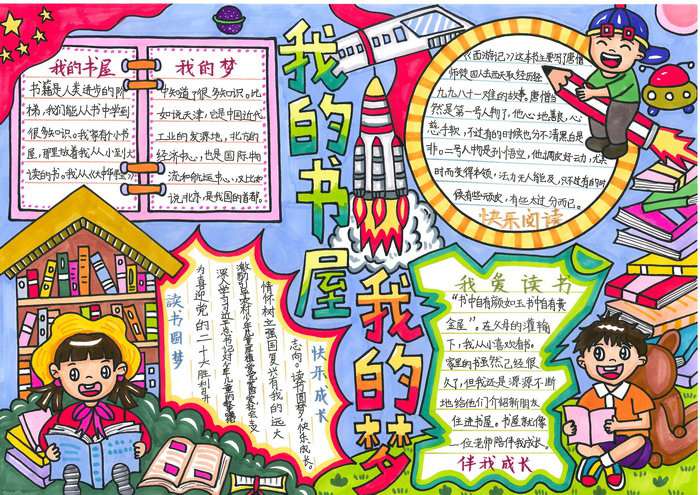 我的书屋
我的梦
我的书屋
书籍是人类进步的阶
梯,我们能从书中学到
很多知识。我家有个小书
屋,那里放着我从小到大
读的书。我从《大中华
我的梦
中知道了很多知识。比
如说天津,它是中国近代
工业的发源地,北方的
经济中心,也是国际物
流和航运中心,又比如
说,北京,是我国的首都。
《西游记》这本书主要写了唐僧
师徒四人去西天取经经
九九八十一难的故事。唐僧
然是第一号人物了,他心地善良,心
慈手软,不过有的时候也分不清黑白是
非。二号人物是孙悟空,他调皮好动,尤其
时而变得本领,法力无人能及,只不过有的时
候有些顽皮,有些太过分而已。
快乐阅读
读书圆梦
为喜迎党的二十大胜利召
激励引导农村少年儿童
情怀树立强国复兴有我的远大
志向。读书圆梦,快乐成长。
快乐成长
我爱读书
“书中自有颜如玉书中自有黄
金屋”。在父母的灌输
下,我从小喜欢看书。
家里的书虽然已经很
久了,但我还是源源不断
地给他们介绍新朋友
住进书屋。书屋就像
一位老师陪伴我成长。
伴我成长